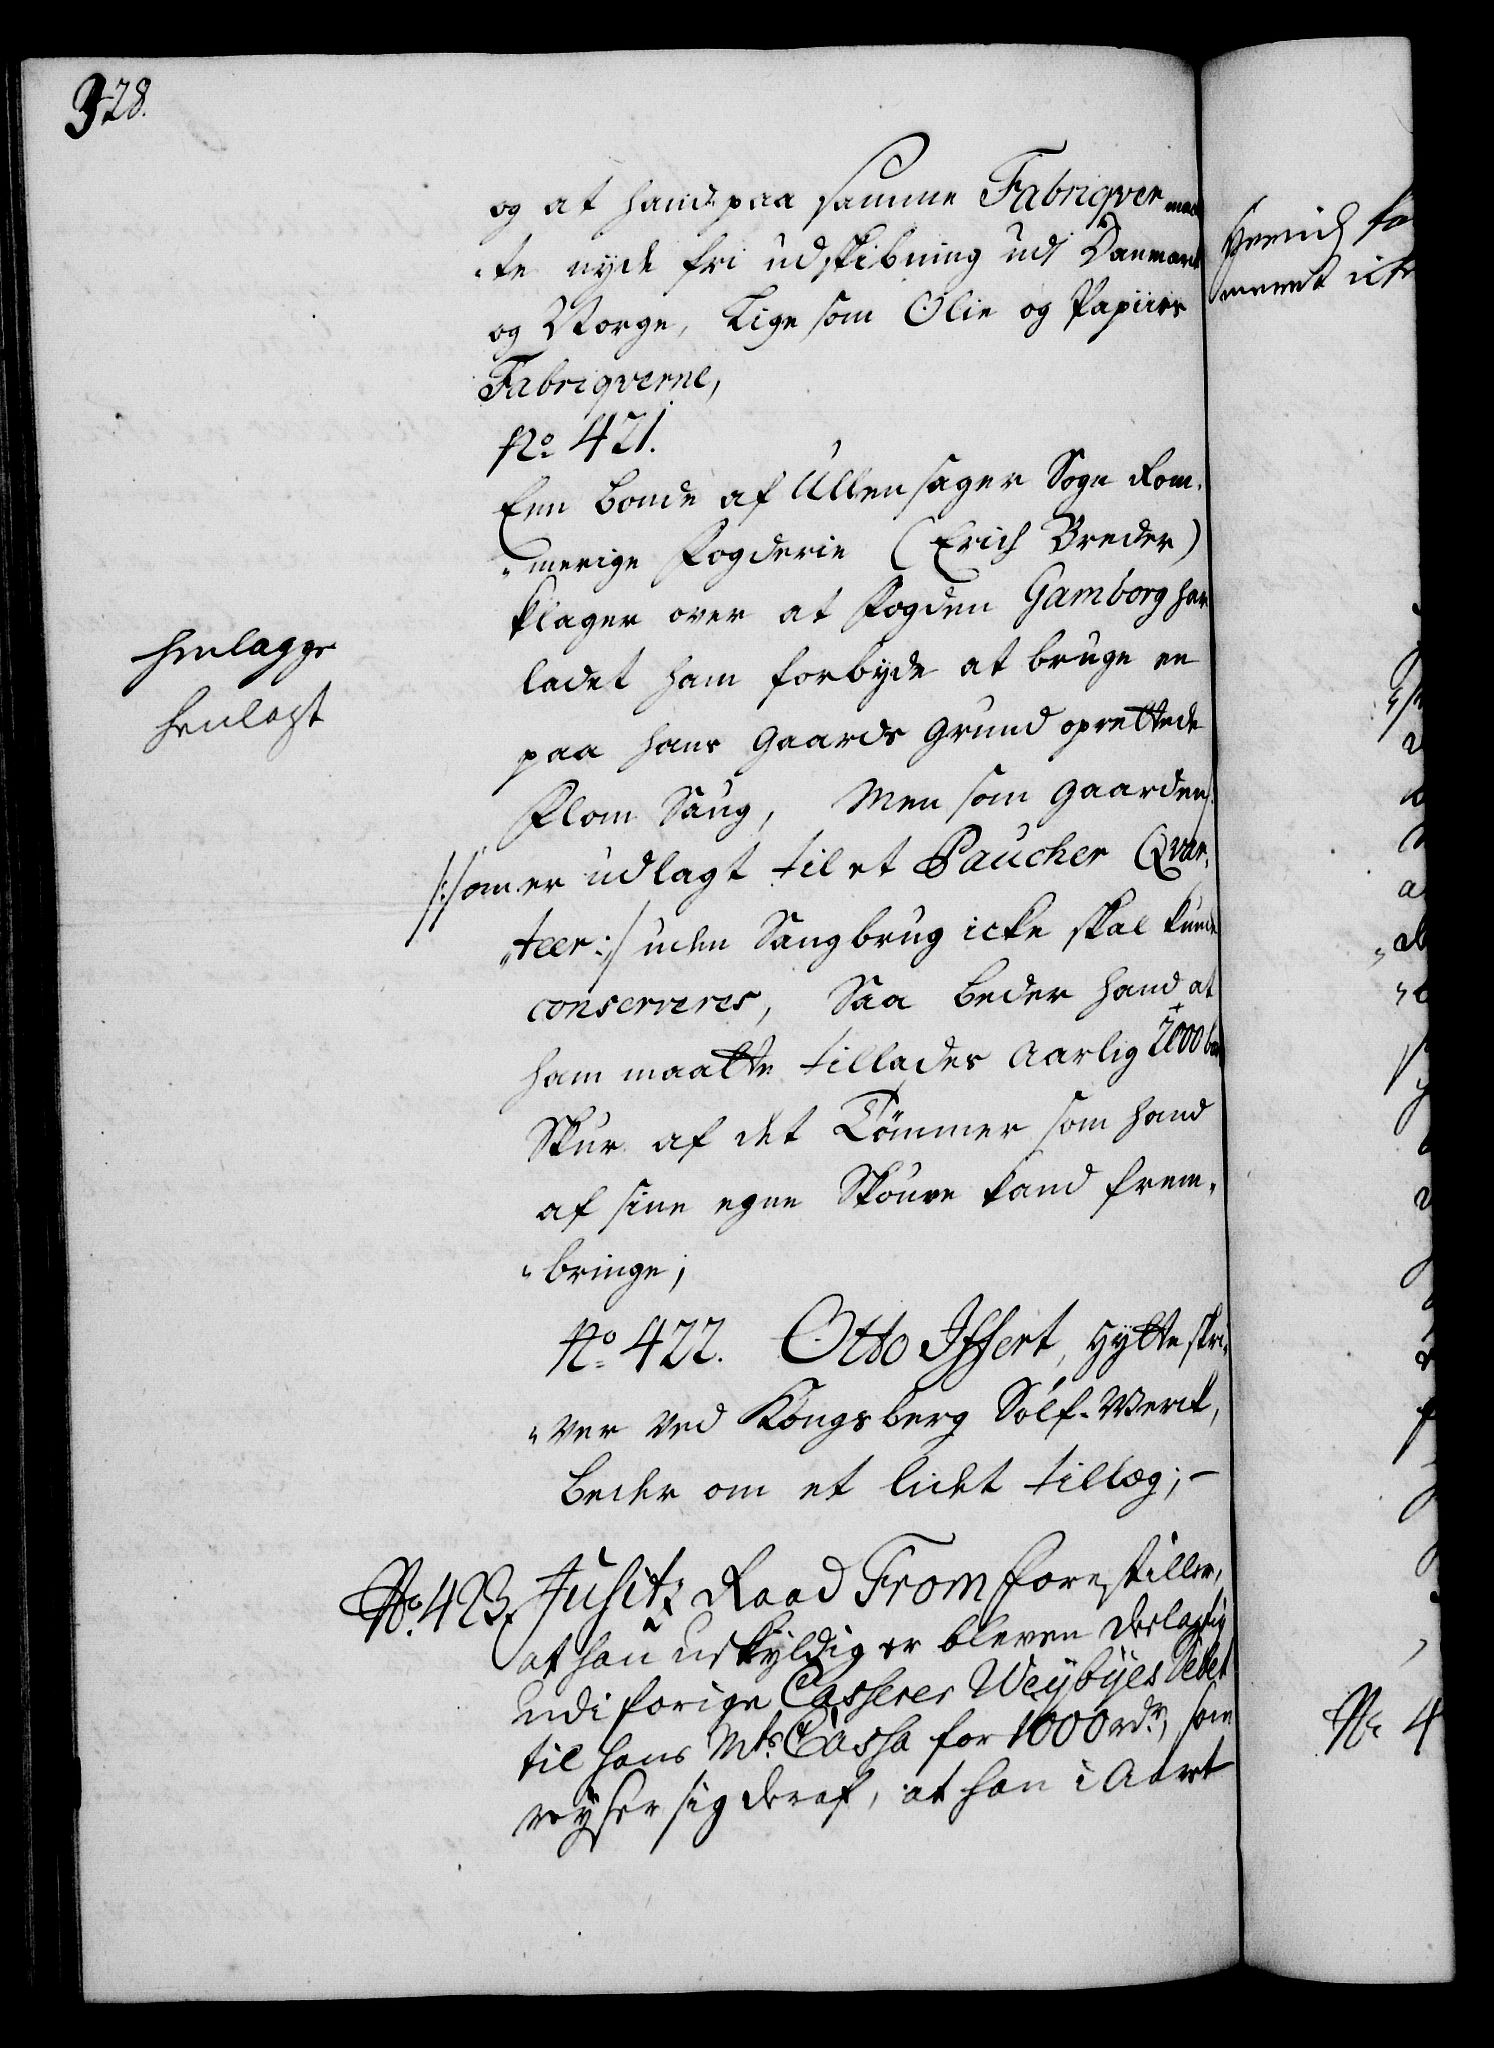 328.
og at hand paa samme Fabriqver maa
„te nyde fri udskibning udi Danmark
og Norge, Lige som Olie og Papiirs
Fabriqverne,
No 421.
Een bonde af Ullensager Sogn Rom„
„merige Fogderie (Erich Breder)
klager over at Fogden Gamborg har
ladet ham forbyde at bruge en
paa hans Gaards Grund oprettede
Flom Saug, Men som Gaarden
/:som er udlagt til et Paucher Qvar„
„teer:/ uden Saugbrug icke skal kunde
conserveres, Saa beder hand at
ham maatte tillades Aarlig 2000 b
Skur af det Tømmer som hand
af sine egne Skouve kand frem„
„bringe;
henlægge
henlagt
No 422. Otto Iffert, Hytteskri„
„ver ved Kongsberg Sølf-Werck,
beder om et lidet tillæg;-
No. 423. Justitz Raad From forestiller,
at han uskyldig er bleven deelagtig
udi forige Casserer Weybyes debet
til hans Mts. Cassa for 1000 rdr, som
reyser sig deraf, at han i Aaret
No 4